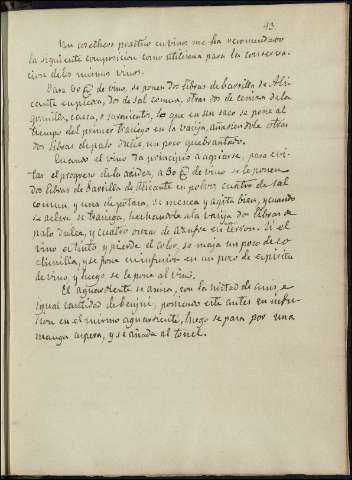 43.
Un cosechero practico en vinos me ha recomendado
la siguiente composicion como utilisima para la conserva-
cion de los mismos vinos.
Para 60 @ de vino, se ponen dos libras de barrilla de Ali
cante en piedra, dos de sal comun, otras dos de ceniza de la
granilla, casca, y sarmientos, lo que en un saco se pone al
tiempo del primer trasiego en la vasija, añadiendole otras
dos libras de palo dulce, un poco quebrantado.
Cuando el vino da principio a agriarse, para evi
tar el progreso de la acidez, a 30 @ de vino se le ponen
dos libras de barrilla de Alicante en polvo, cuatro de sal
comun y una de potasa, se mezcla y agita bien, y cuando
se aclare se trasiega, hechandole a la vasija dos libras de
palo dulce, y cuatro onzas de azufre en terron. Si el
vino es tinto, y pierde el color, se maja un poco de co
chinilla, y se pone en infusion en un poco de espiritu
de vino, y luego se le pone al vino.
El aguardiente se anisa, con la mitad de anis, e
igual cantidad de benjui, poniendo este antes en infu
sion en el mismo aguardiente, luego se pasa por una
manga espesa, y se añade al tonel.